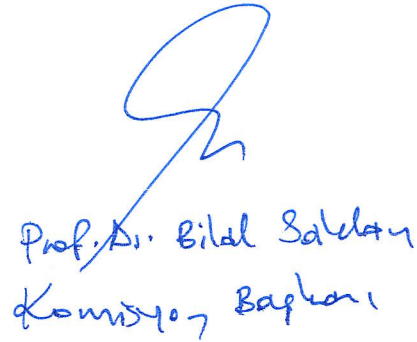 Prof. Dr. Bilal
Komisyon Başkanı